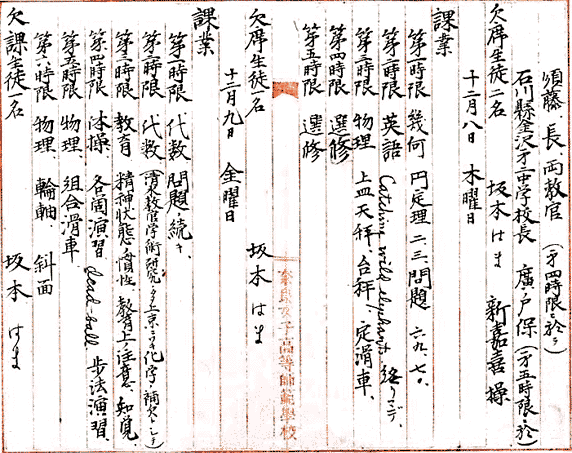 須藤、長、両教官 （第四時限ニ於テ）
石川縣金沢第二中学校長 廣戸保（第五時限ニ於テ）
欠席生徒二名 坂本はま 新嘉喜操
十二月八日 木曜日
課業
第一時限 幾何 円定理二、三、問題 六九、七〇、
第二時限 英語 Catching wild elephant. 終リマデ、
第三時限 物理 上皿天秤、台秤、定滑車、
第四時限 選修
第五時限 選修
奈良女子高等師範學校
欠席生徒一名 坂本はま
十二月九日 金曜日
課業
第一時限 代数 問題ノ続キ、
第二時限 代数
第三時限 教育 精神状態ノ慣性、教育上ノ注意、知覚、
第四時限 体操 各個演習 dead-ball 歩法演習、
第五時限 物理、組合滑車、
第六時限 物理、輪軸、斜面
欠課生徒一名 坂本はま